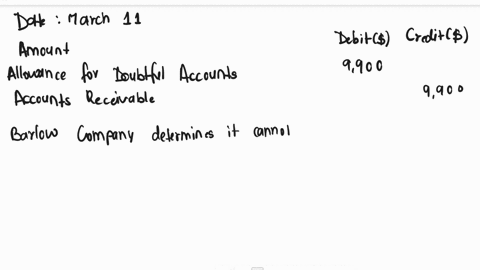 Date : March 11
Amount Debit($) Credit($)
Allowance for Doubtful Accounts 9,900
Accounts Receivable 9,900
Barlow Company determines it cannol